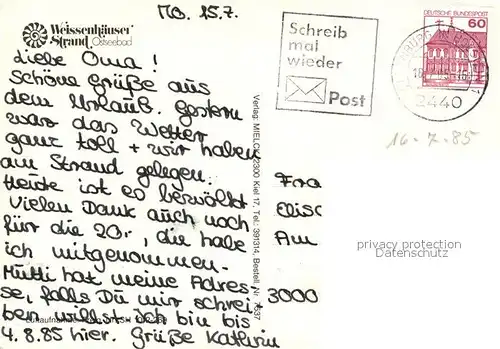 Mo. 15.7.
Weissenhäuser
Strand Ostseebad
Liebe Oma!
Schöne Grüße aus
dem Urlaub. Gestern
war das Wetter
ganz toll + wir haben
am Strand gelegen.
Heute ist es bewölkt
Vielen Dank auch noch
für die 20,-, die habe
ich mitgenommen.
Mutti hat meine Adres-
se, falls Du mir schrei-
ben willst. Ich bin bis
4.8.85 hier. Grüße Kathrin
Verlag: MIELCK 2300 Kiel 17, Tel.: 391314, Bestell. Nr.
Schreib
mal
wieder
Post
DEUTSCHE BUNDESPOST
60
2440
16-7-85
Fra
Elisa
Am
3000
privacy protection
Datenschutz